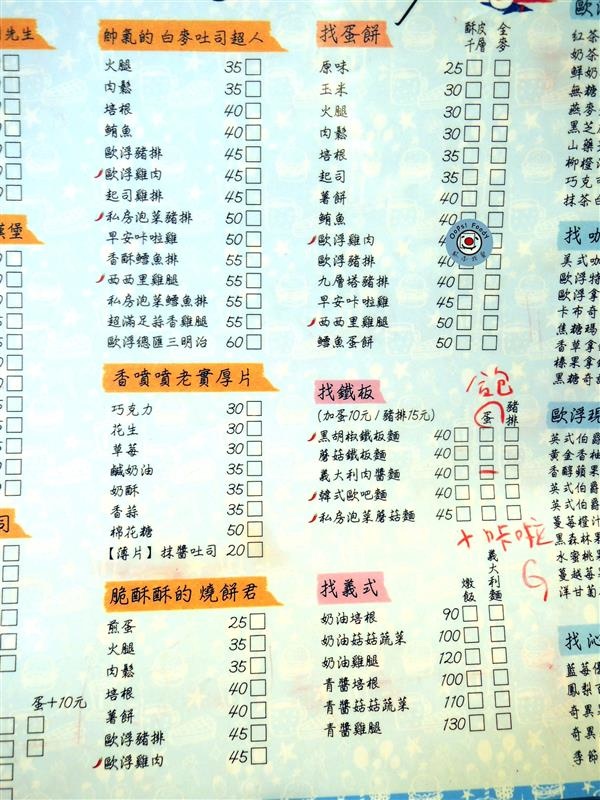 先生
帥氣的 白麥吐司超人
火腿 35
肉鬆 35
培根 40
鮪魚 40
歐浮豬排 45
歐浮雞肉 45
起司雞排 45
私房泡菜豬排 50
早安咔啦雞 50
香酥鱈魚排 55
西西里雞腿 55
私房泡菜鱈魚排 55
超滿足蒜香雞腿 55
歐浮總匯三明治 60
香噴噴老實厚片
巧克力 30
花生 30
草莓 30
鹹奶油 35
奶酥 35
香蒜 35
棉花糖 50
【薄片】抹醬吐司 20
脆酥酥的 燒餅君
煎蛋 25
火腿 35
肉鬆 35
培根 40
薯餅 40
歐浮豬排 45
歐浮雞肉 45
蛋+10元
找蛋餅
酥皮千層 全麥
原味 25
玉米 30
火腿 30
肉鬆 30
培根 35
起司 35
薯餅 40
鮪魚 40
歐浮雞肉
歐浮豬排 40
九層塔豬排
早安咔啦雞 45
西西里雞腿 50
鱈魚蛋餅 50
Oops! Foody
找鐵板
(加蛋10元/豬排15元)
蛋 豬排
黑胡椒鐵板麵 40
蘑菇鐵板麵 40
義大利肉醬麵 40
韓式歐吧麵 40
私房泡菜蘑菇麵 45
+咔啦
G
找義式
燉飯 義大利麵
奶油培根 90
奶油菇菇蔬菜 100
奶油雞腿 120
青醬培根 100
青醬菇菇蔬菜 110
青醬雞腿 130
紅茶
奶茶
鮮奶
無糖
燕麥
黑芝
山藥
柳橙
巧克
抹茶
找咖
美式咖
歐浮特
歐浮拿
卡布奇
焦糖瑪
香草拿
榛果拿
黑糖奇
歐浮現
英式伯爵
黃金香柚
香醇蘋果
英式伯爵
英式伯爵
蔓莓橙汁
黑森林果
水蜜桃果
蔓越莓
洋甘菊
找沁
藍莓優
鳳梨百
奇異果
奇異
季節